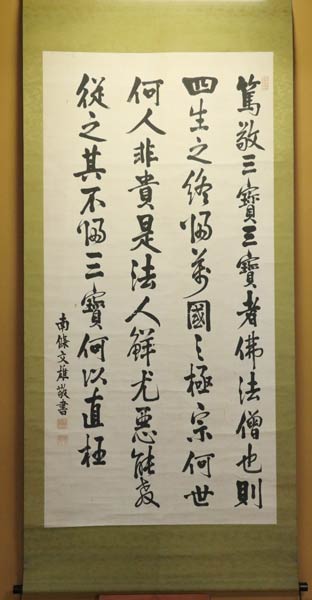 篤敬三寳三寳者佛法僧也則
四生之終㱕萬國之極宗何世
何人非貴是法人鮮尤惡能教
從之其不㱕三寳何以直枉
南條文雄敬書